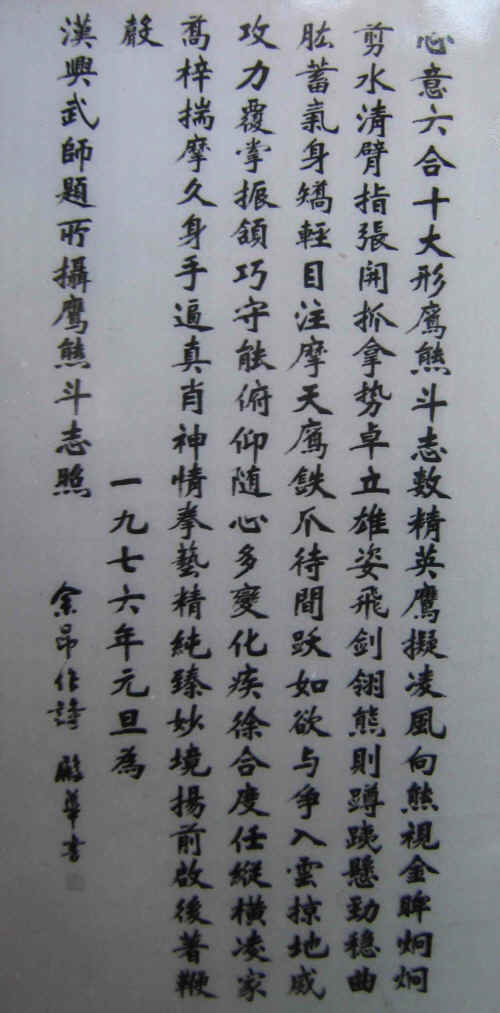 心意六合十大形鷹熊斗志數精英鷹擬凌風向熊視金眸炯炯
剪水清臂指張開抓拿势卓立雄姿飛剑翎熊則蹲跠懸勁穩曲
肱蓄氣身矯輕目注摩天鷹鉄爪待間跃如欲与争入雲掠地威
攻力覆掌振領巧守能俯仰随心多變化疾徐合度任縱横凌家
喬梓揣摩久身手逼真肖神情拳藝精純臻妙境揚前啟後著鞭
聲 一九七六年元旦為
漢興武師題所攝鷹熊斗志照 余昂作詩 華書